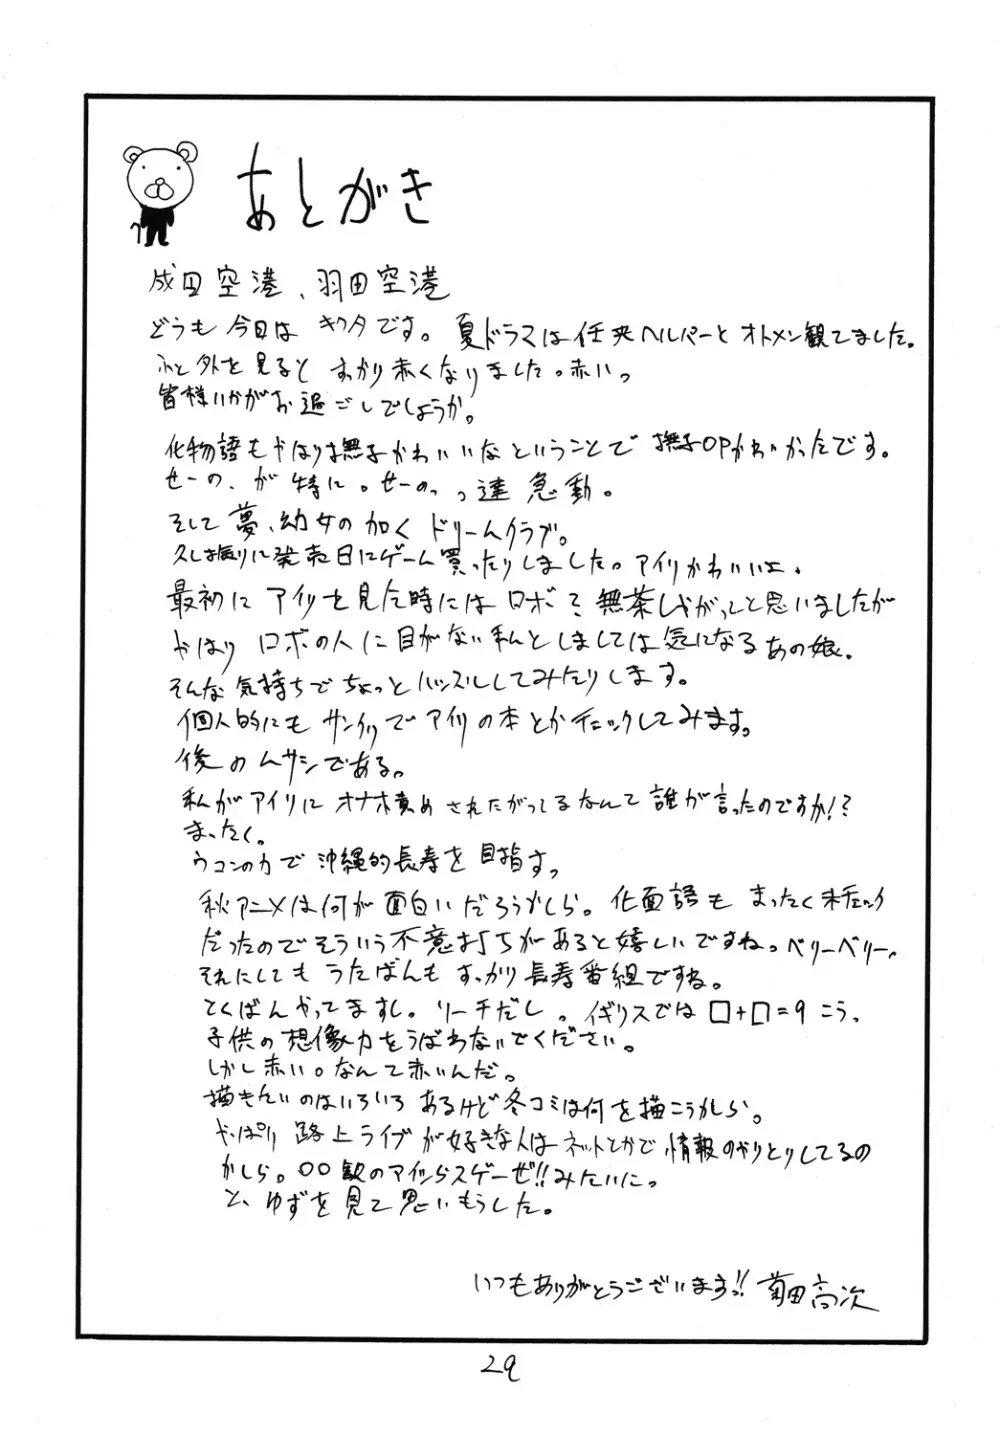 あとがき
成田空港、羽田空港
どうも今日は キクタです。夏ドラマは任侠ヘルパーとオトメン観てました。
ふと外を見ると すっかり赤くなりました。赤いっ
皆様いかがお過ごしでしょうか。
化物語もやはり撫子かわいいなということで 撫子OPかわいかったです。
せーの、が特に。せーのっっ達 急動。
そして夢、幼女の如く ドリームクラブ。
久し振りに発売日にゲーム買ったりしました。アイリかわいいよ、
最初に アイリを見た時には ロボて 無茶しやがってと思いましたが
やはり ロボの人に目がない私としましては気になるあの娘、
そんな気持ちでちょっとハッスルしてみたりします。
個人的にも サンクリでアイリの本とかチェックしてみます。
後のムサシである。
私がアイリに オナホ責め されたがってるなんて 誰が言ったのですか!?
まったく。
ウコンの力で 沖縄的長寿を目指す。
秋アニメは何が面白いだろうかしら。化物語も まったく未チェック
だったのでそういう不意打ちがあると嬉しいですねっ ベリーベリー、
それにしても うたばんも すっかり長寿番組ですね。
とくばんやってますし。リーチだし。イギリスでは □+□=9 こう、
子供の想像力をうばわないでください。
しかし赤い。なんて赤いんだ。
描きたいのはいろいろ あるけど 冬コミは何を描こうかしら。
やっぱり 路上ライブが好きな人は ネットとかで 情報のやりとりしてるの
かしら。〇〇駅のアイツらスゲーぜ!!みたいにっ
と、ゆずを見て思いもうした。
いつもありがとうございますっ!! 菊田高次
29